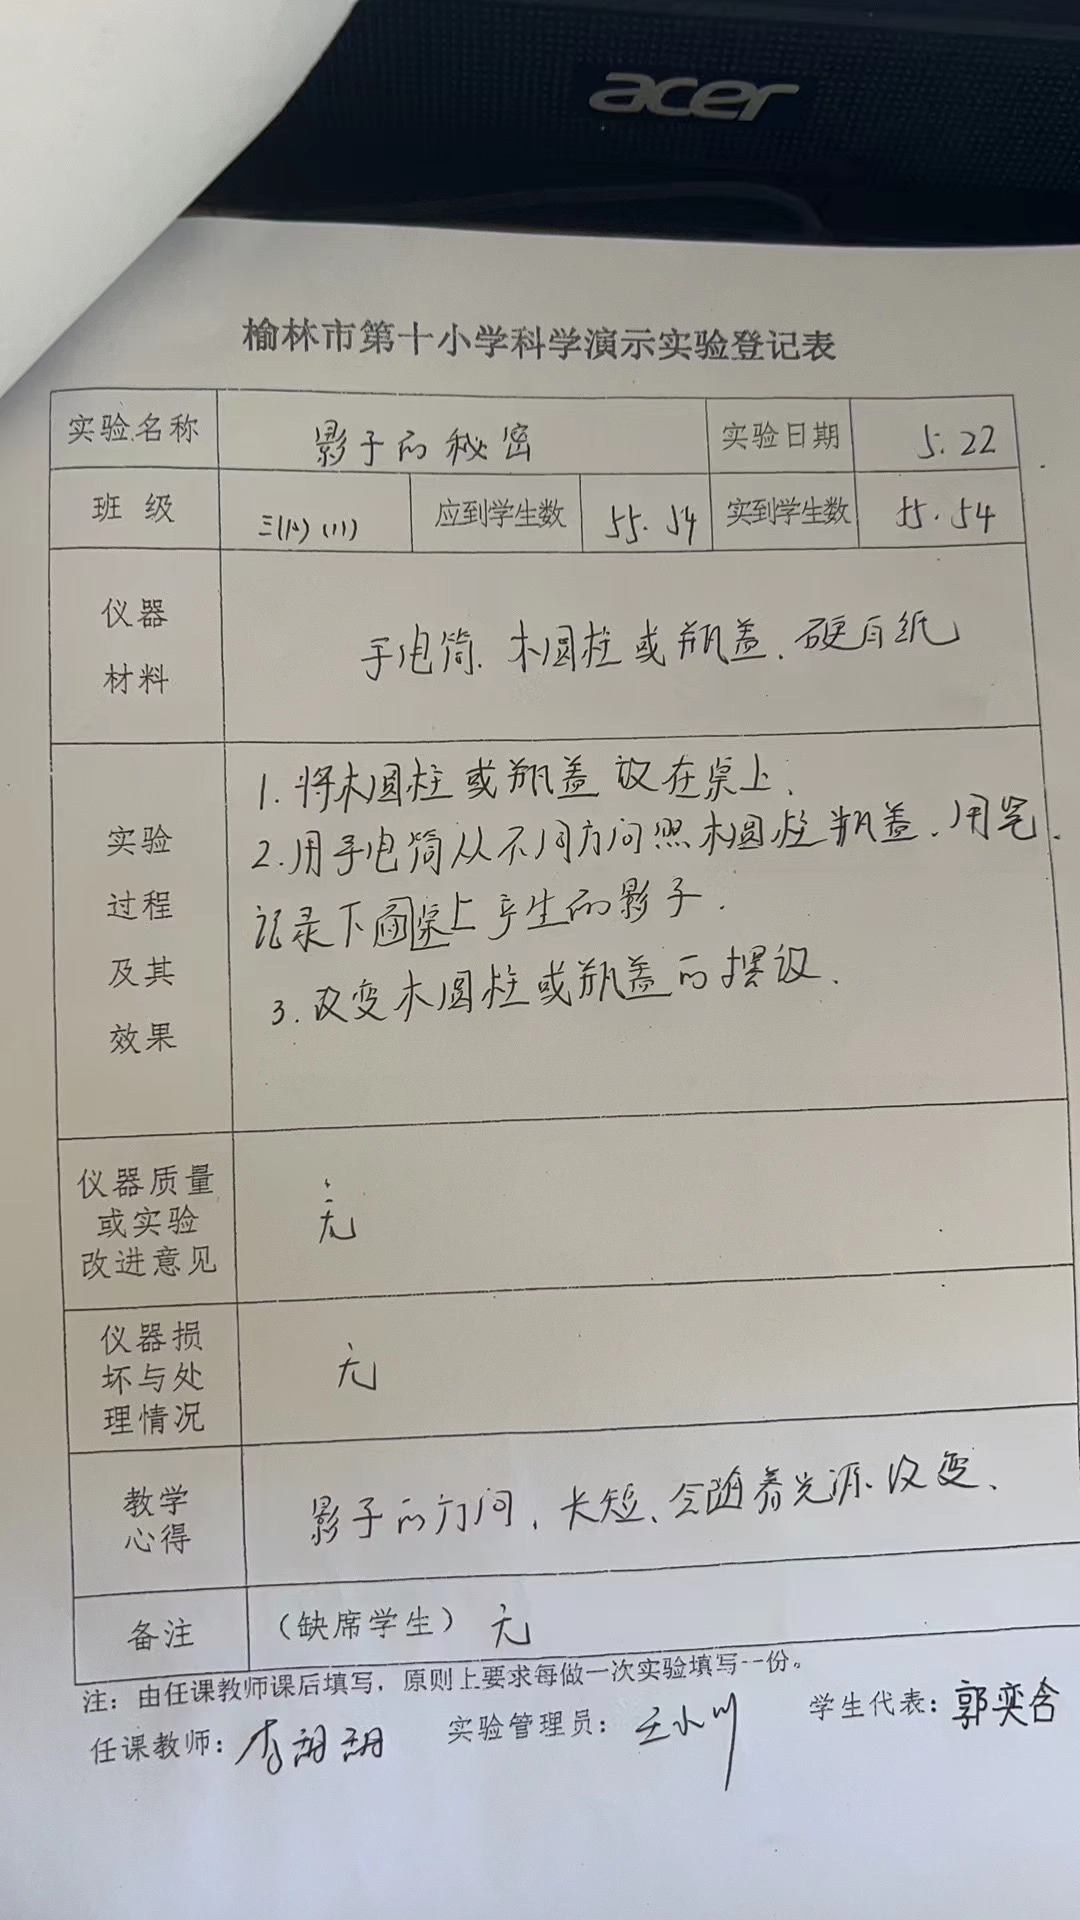 acer
榆林市第十小学科学演示实验登记表
实验名称 影子的秘密 实验日期 5.22
班 级 应到学生数 55.54 实到学生数 55.54
仪器
材料
手电筒、木圆柱或瓶盖、硬白纸
实验
过程
及其
效果
1.将木圆柱或瓶盖放在桌上.
2.用手电筒从不同方向照木圆柱瓶盖.用笔.
记录下桌上产生的影子.
3.改变木圆柱或瓶盖的摆设.
仪器质量
或实验
改进意见
无
仪器损
坏与处
理情况
无
教学
心得
影子的方向、长短、会随着光源改变、
备注 （缺席学生） 无
注：由任课教师课后填写，原则上要求每做一次实验填写一份。
任课教师：李甜甜 实验管理员：王小川 学生代表：郭奕含